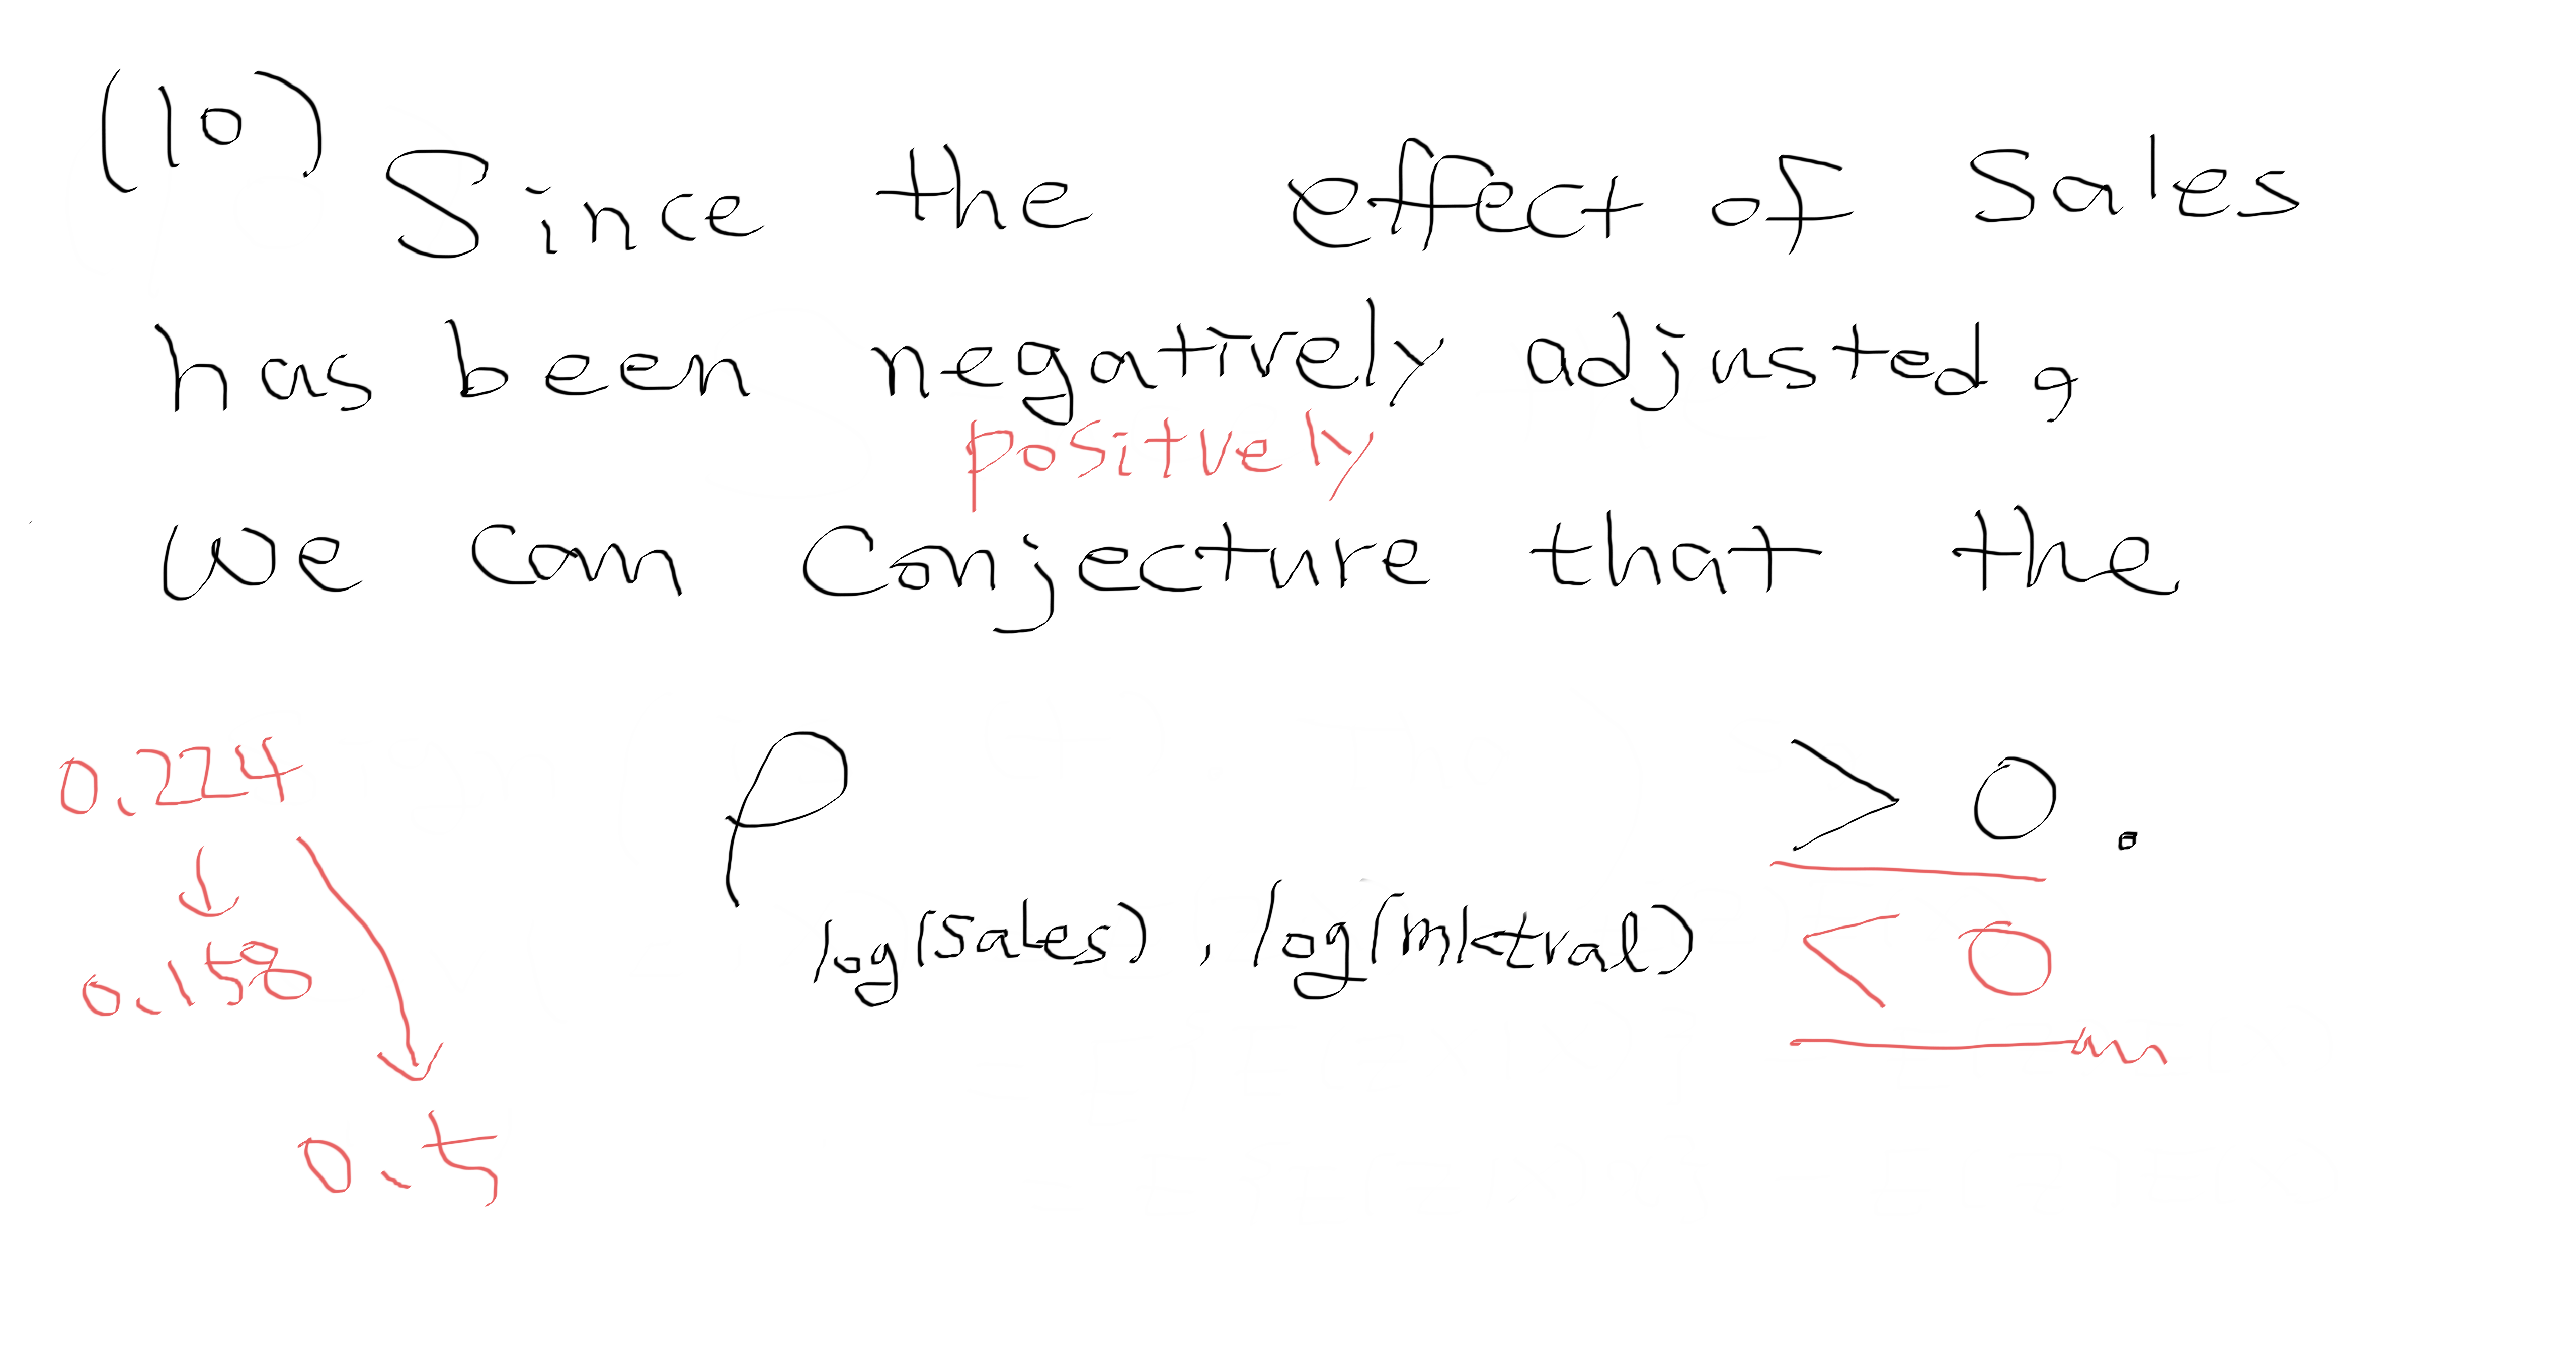 (10) Since the effect of Sales
has been negatively adjusted,
positvely
we can conjecture that the
0.224
ρ log(sales), log(mktval) > 0.
0.158
< 0
0.5